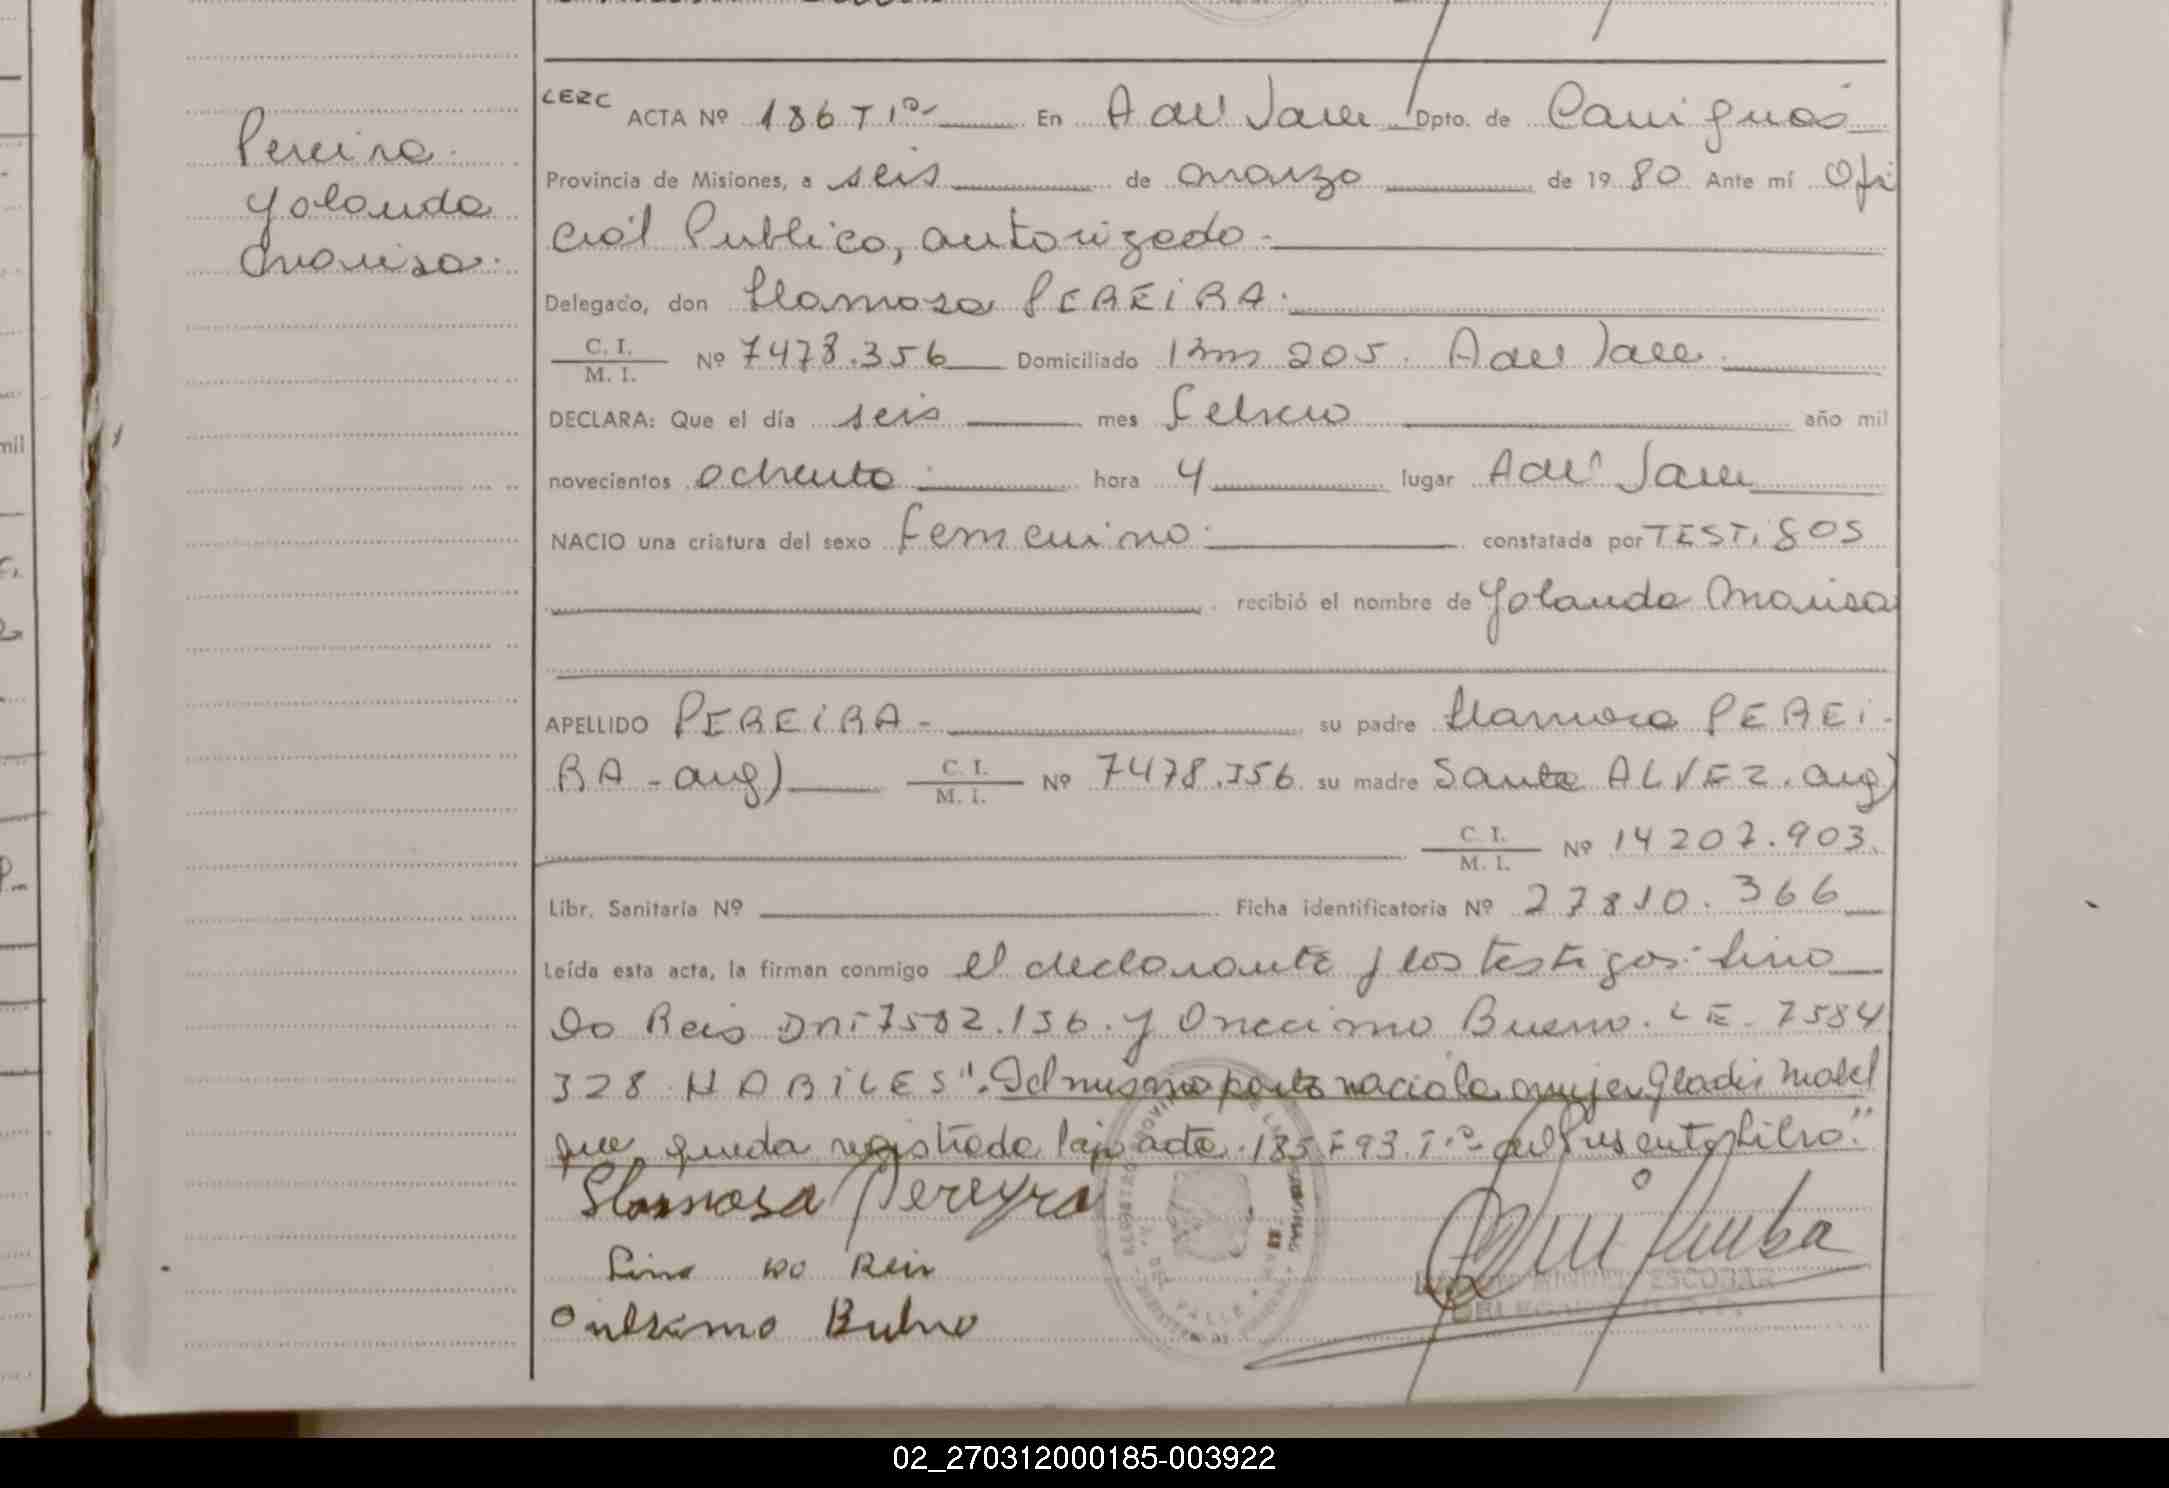 Pereira
Yolanda
Marisa.
CERC ACTA Nº 186 Tº En A del Valle Dpto. de Cainguás
Provincia de Misiones, a seis de marzo de 1980 Ante mí Ofi
cial Publico, autorizado.
Delegado, don Llamosa PEREIRA.
C. I. M. I. Nº 7478.356 Domiciliado Km 205. A del Valle.
DECLARA: Que el día seis mes febrero año mil
novecientos ochenta hora 4 lugar A del Valle
NACIO una criatura del sexo femenino constatada por TESTigos
recibió el nombre de Yolanda Marisa
APELLIDO PEREIRA - su padre Llamosa PEREI-
RA - arg) C. I. M. I. Nº 7478.356 su madre Santa ALVEZ. arg)
C. I. M. I. Nº 14207.903.
Libr. Sanitaria Nº Ficha identificatoria Nº 27810.366
Leída esta acta, la firman conmigo el declarante y los testigos: Lino
Do Reis DNI 7582.136. y Onecimo Bueno. LE. 7584
328 HABILES". Del mismo parto nacio la mujer Gladis Mabel
que queda registrada bajo acta 185 F 93. Tº del presente libro."
Llamosa Pereyra
Lino Do Reis
Onesimo Bueno
ESCOBAR
02_270312000185-003922